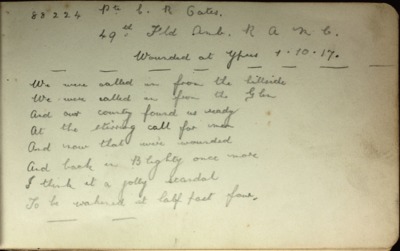 88224 Pte C. R Gates.
49th Fld Amb. R A M C.
Wounded at Ypres 1.10.17.
We were called in from the hillside
We were called in from the Glen
And our country found us ready
At the stirring call for men
And now that we're wounded
And back in Blighty once more
I think it a jolly scandal
To be wakened at half past four.